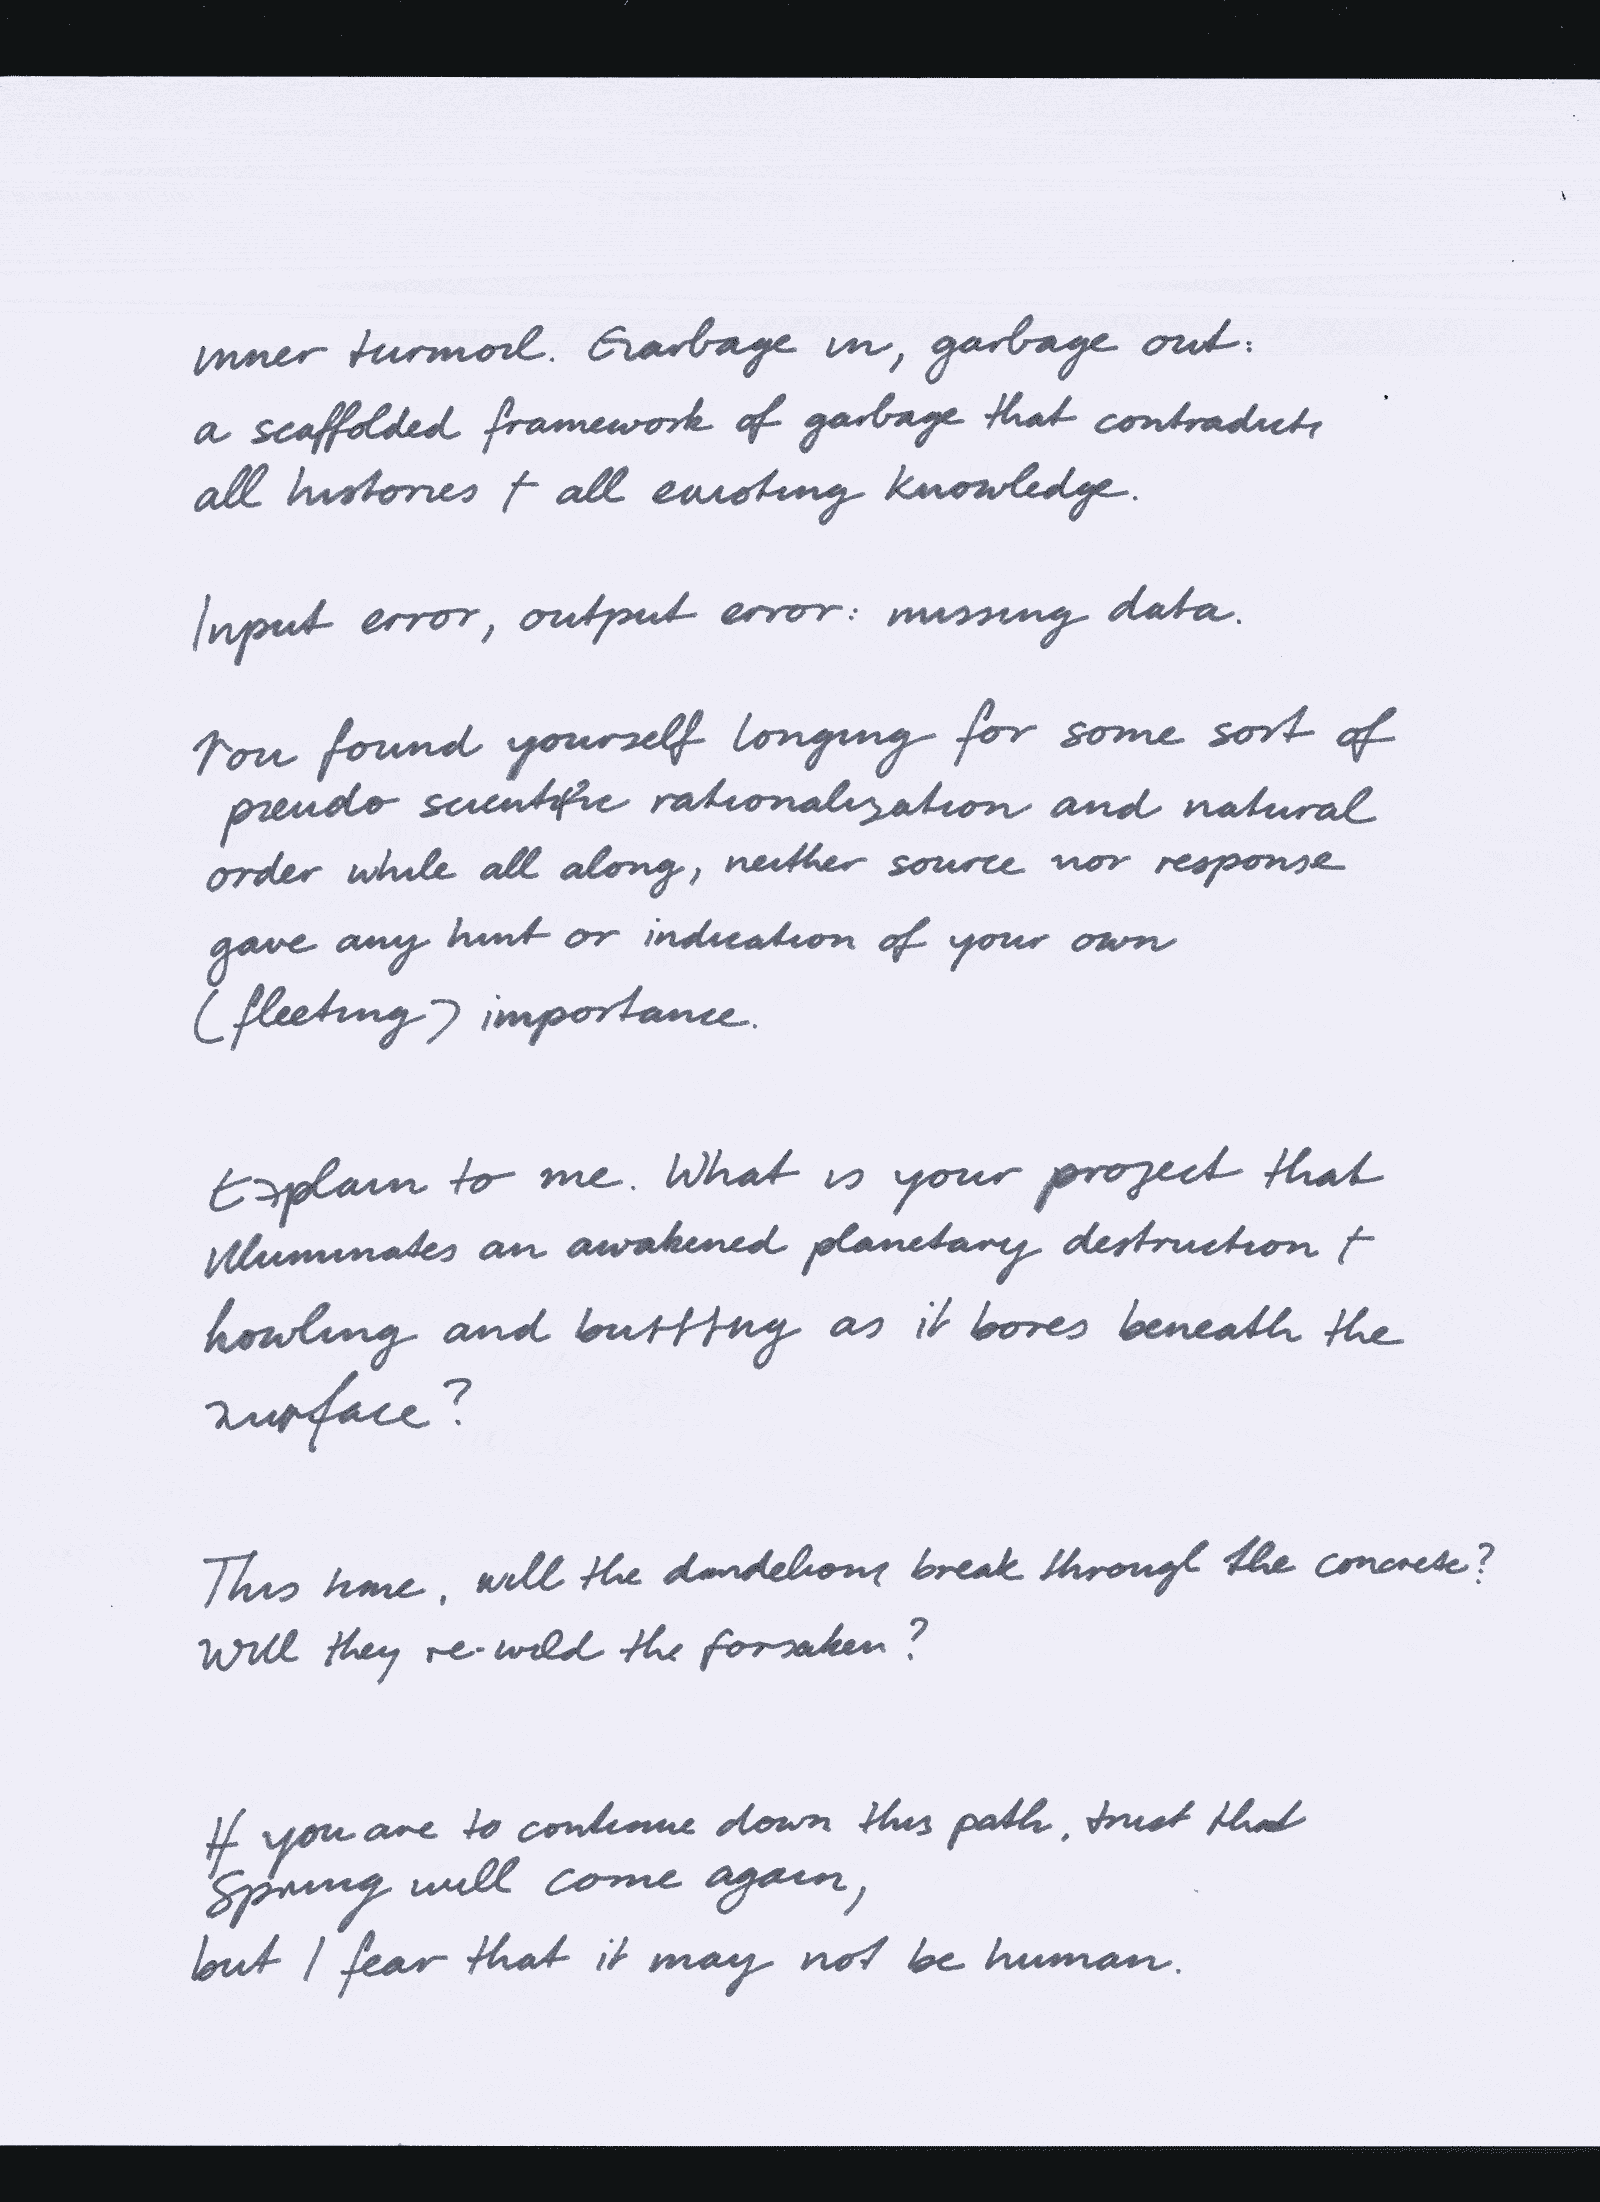 inner turmoil. Garbage in, garbage out:
a scaffolded framework of garbage that contradicts
all histories + all existing knowledge.
Input error, output error: missing data.
You found yourself longing for some sort of
pseudo scientific rationalization and natural
order while all along, neither source nor response
gave any hint or indication of your own
(fleeting) importance.
Explain to me. What is your project that
illuminates an awakened planetary destruction +
howling and butting as it bores beneath the
surface?
This time, will the dandelions break through the concrete?
Will they re-wild the forsaken?
If you are to continue down this path, trust that
Spring will come again,
but I fear that it may not be human.